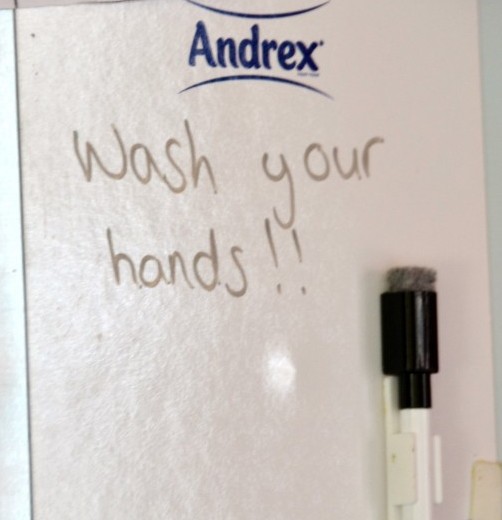 Andrex
Wash your
hands!!